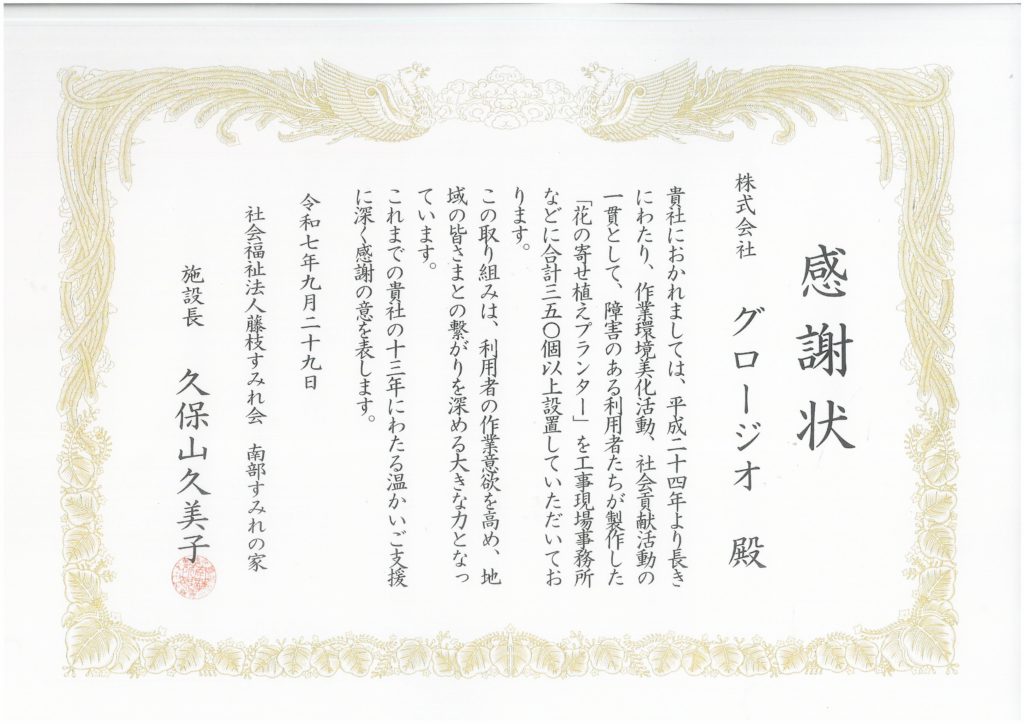 感謝状
株式会社 グロージオ 殿
貴社におかれましては、平成二十四年より長き
にわたり、作業環境美化活動、社会貢献活動の
一貫として、障害のある利用者たちが製作した
「花の寄せ植えプランター」を工事現場事務所
などに合計三五〇個以上設置していただいてお
ります。
この取り組みは、利用者の作業意欲を高め、地
域の皆さまとの繋がりを深める大きな力となっ
ています。
これまでの貴社の十三年にわたる温かいご支援
に深く感謝の意を表します。
令和七年九月二十九日
社会福祉法人藤枝すみれ会 南部すみれの家
施設長 久保山久美子